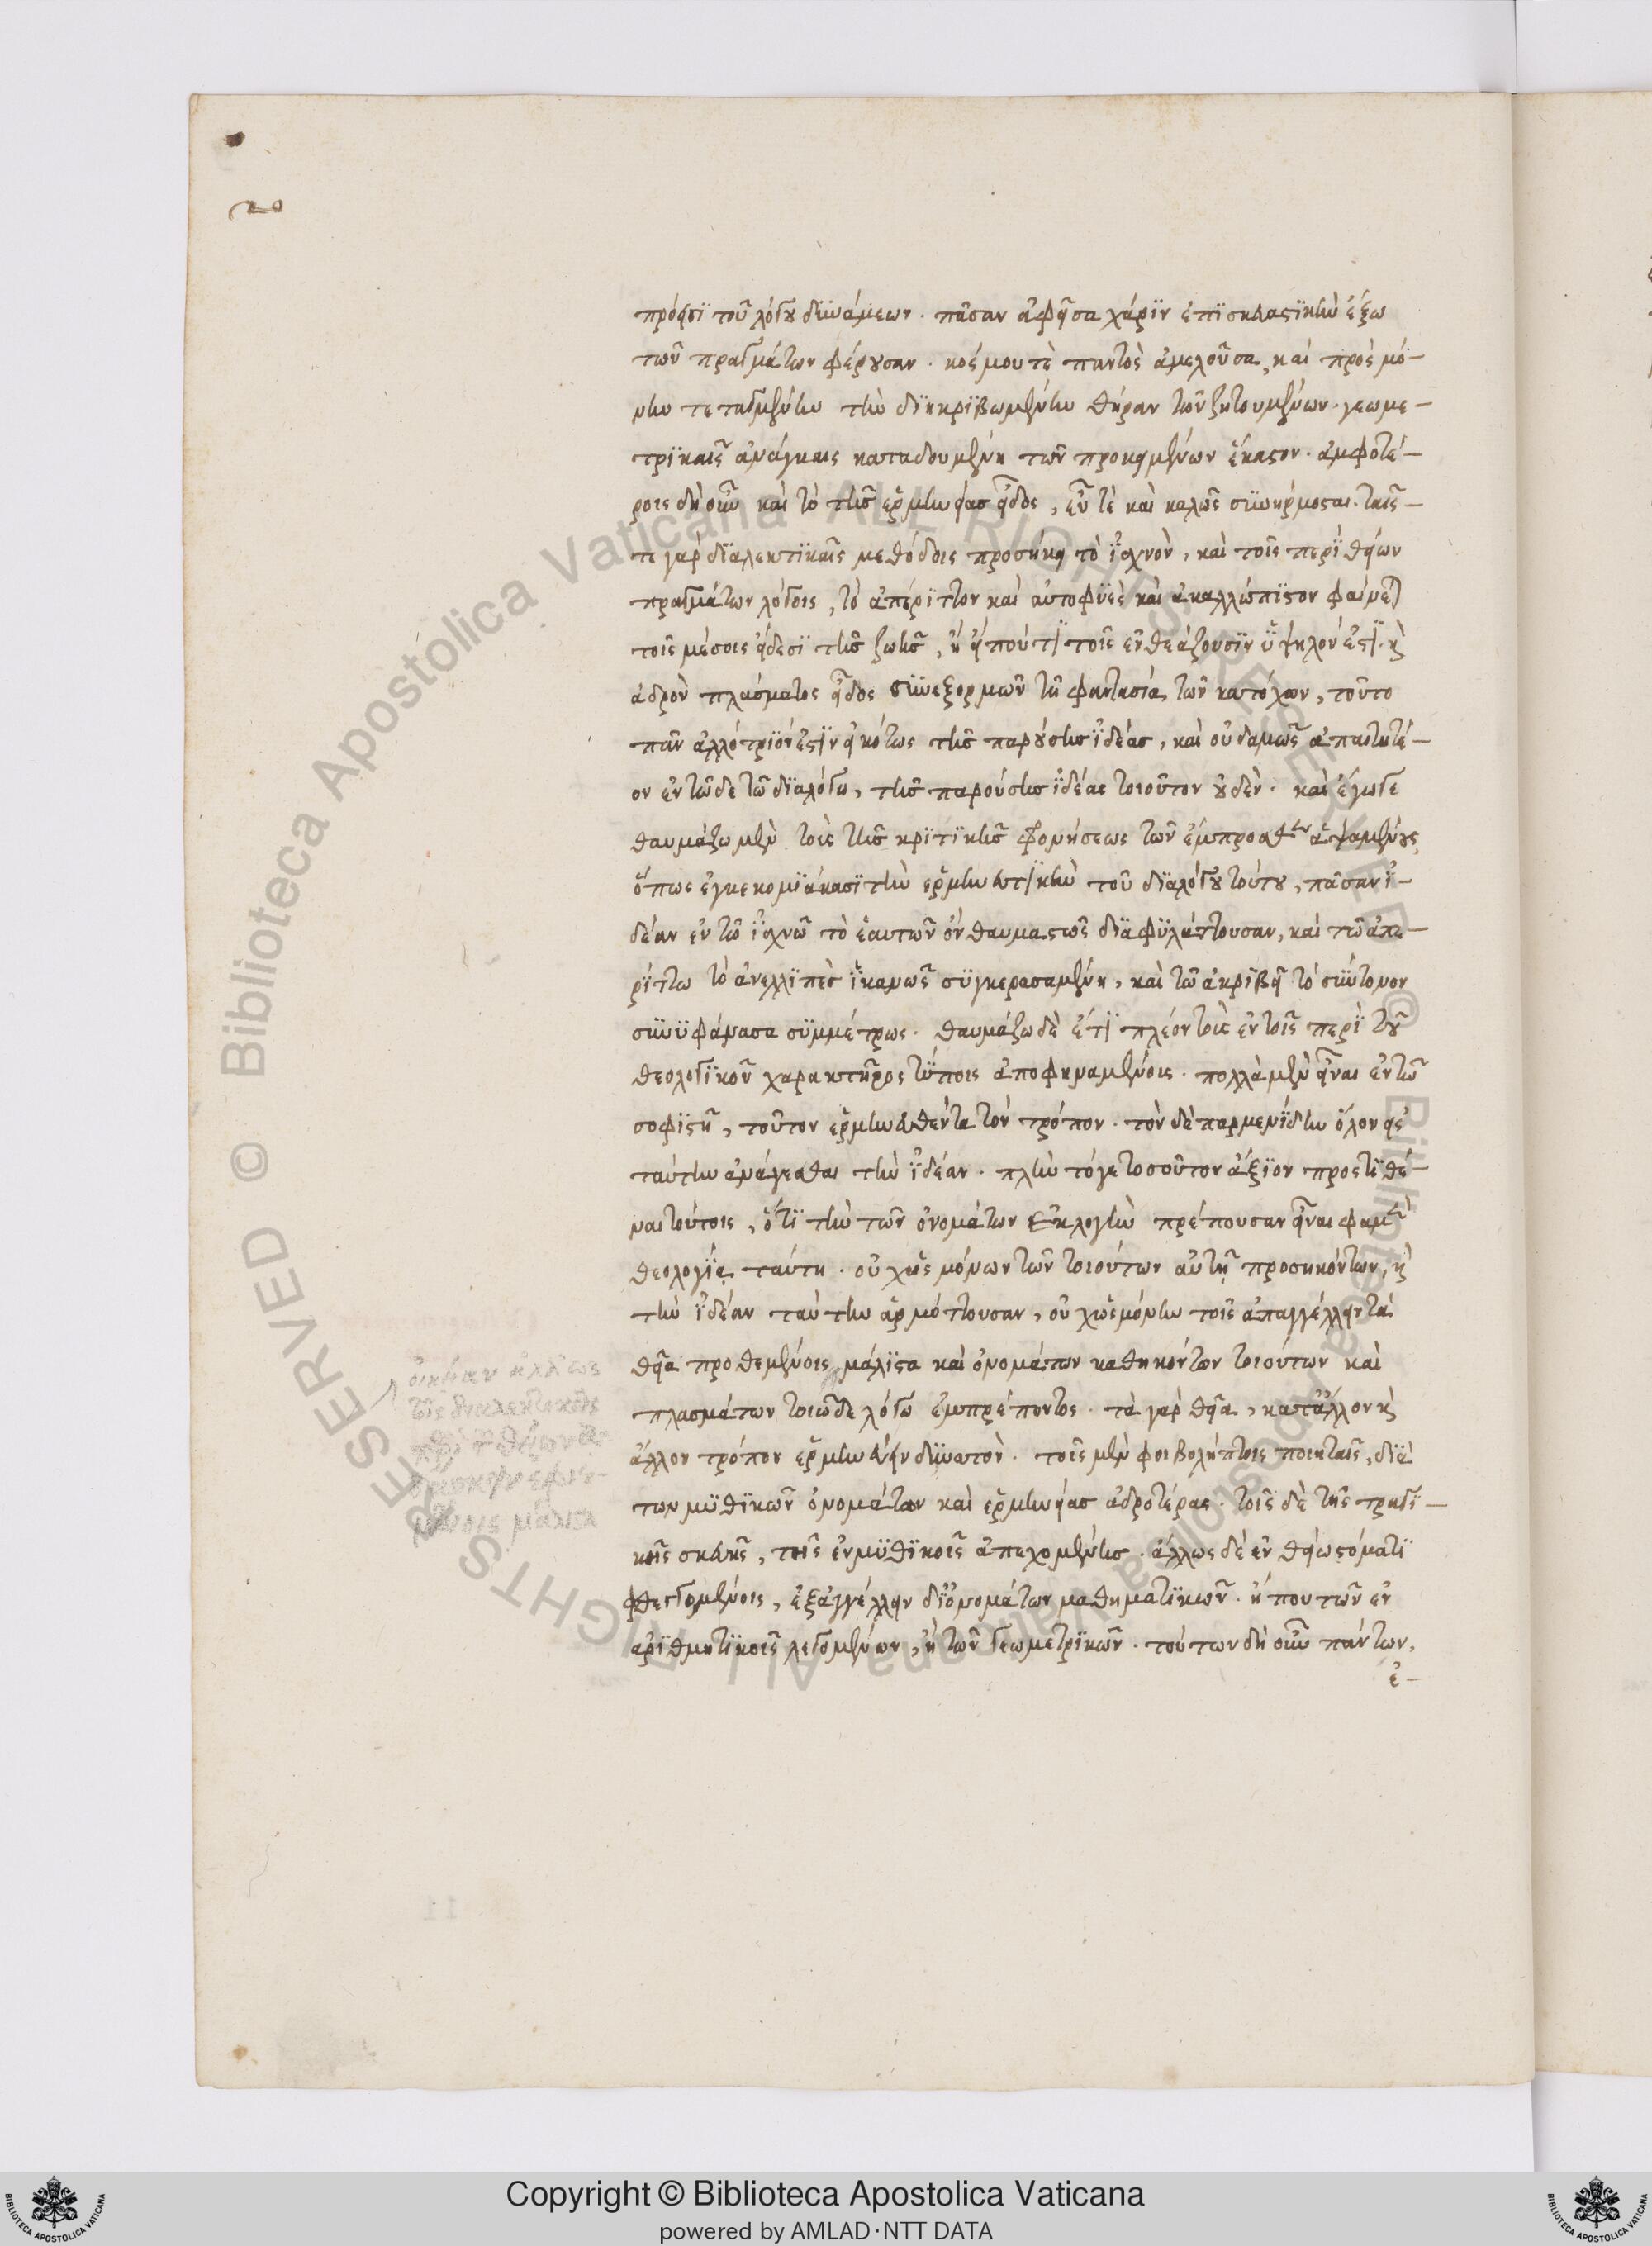 20
πρόεισι τοῦ λόγου δυνάμεων. πᾶσαν ἀφεῖσα χάριν ἐπισκαστικὴν ἔξω
τῶν πραγμάτων φέρουσαν. κόσμου τὲ παντὸς ἀμελοῦσα, καὶ πρὸς μό-
νην τεταγμένην τὴν διηκριβωμένην θήραν τῶν ζητουμένων. γεωμε-
τρικαῖς ἀνάγκαις καταδουμένη τῶν προκειμένων ἕκαστον. ἀμφοτέ-
ροις δὴ οὖν καὶ τὸ τῆς ἑρμηνείας εἶδος, εὖ τὲ καὶ καλῶς συνήρμοσται. ταῖς-
τε γὰρ διαλεκτικαῖς μεθόδοις προσήκει τὸ ἰσχνὸν, καὶ τοῖς περὶ θείων
πραγμάτων λόγοις, τὸ ἀπέριττον καὶ αὐτοφυὲς καὶ ἀκαλλώπιστον φαίνεται
τοῖς μέσοις εἴδεσι τῆς ζωῆς, ἢ εἴπού τι τοῖς ἐνθεάζουσιν ὑψηλόν ἐστι. καὶ
ἁδρὸν πλάσματος εἶδος συνεξορμῶν τῇ φαντασίᾳ τῶν κατόχων, τοῦτο
πᾶν ἀλλότριόν ἐστιν εἰκότως τῆς παρούσης ἰδέας, καὶ οὐδαμῶς ἀπαιτητέ-
ον ἐν τῷδε τῷ διαλόγῳ, τῆς παρούσης ἰδέας τοιοῦτον οὐδὲν. καὶ ἔγωγε
θαυμάζω μὲν τοὺς τῆς κριτικῆς φρονήσεως τῶν ἔμπροσθεν ἁψαμένους,
ὅπως ἐγκεκομιάκασι τὴν ἑρμηνευτικὴν τοῦ διαλόγου τούτου, πᾶσαν ἰ-
δέαν ἐν τῷ ἰσχνῷ τὸ ἑαυτῶν ὂν θαυμαστῶς διαφυλάττουσαν, καὶ τῷ ἀπε-
ρίττῳ τὸ ἀνελλιπὲς ἱκανῶς συγκερασαμένη, καὶ τῷ ἀκριβεῖ τὸ σύντονον
συνυφάνασα συμμέτρως. θαυμάζω δὲ ἔτι πλέον τοὺς ἐν τοῖς περὶ τοῦ
θεολογικοῦ χαρακτῆρος τύποις ἀποφηναμένοις. πολλὰ μὲν εἶναι ἐν τῷ
σοφιστῇ, τοῦτον ἑρμηνευθέντα τὸν τρόπον. τὸν δὲ παρμενίδην ὅλον εἰς
ταύτην ἀνάγεσθαι τὴν ἰδέαν. πλὴν τόγε τοσοῦτον ἄξιον προστιθέ-
ναι τούτοις, ὅτι τὴν τῶν ὀνομάτων ἐκλογὴν πρέπουσαν εἶναι φαμὲν
θεολογίᾳ ταύτῃ. οὐχ ὡς μόνων τῶν τοιούτων αὐτῇ προσηκόντων, καὶ
τὴν ἰδέαν ταύτην ἁρμόττουσαν, οὐχ ὡς μόνην τοῖς ἀπαγγέλλειν τὰ
θεῖα προθεμένοις μάλιστα καὶ ὀνομάτων καθηκόντων τοιούτων καὶ
πλασμάτων τοιῷδε λόγῳ ἐμπρέποντος. τὰ γὰρ θεῖα, κατἄλλον καὶ
ἄλλον τρόπον ἑρμηνεύειν δυνατὸν. τοῖς μὲν φοιβολήπτοις ποιηταῖς, διὰ
τῶν μυθικῶν ὀνομάτων καὶ ἑρμηνείας ἁδροτέρας. τοῖς δὲ τῆς τραγι-
κῆς σκευῆς, τοῖς ἐν μυθικοῖς ἀπεχομένης. ἄλλως δὲ ἐν θείῳ στόματι
φθεγγομένοις, ἐξαγγέλλειν δι᾽ ὀνομάτων μαθηματικῶν. ἤ που τῶν ἐν
ἀριθμητικοῖς λεγομένων, ἢ τῶν γεωμετρικῶν. τούτων δὴ οὖν πάντων,
ἐ-
Copyright © Biblioteca Apostolica Vaticana
powered by AMLAD·NTT DATA